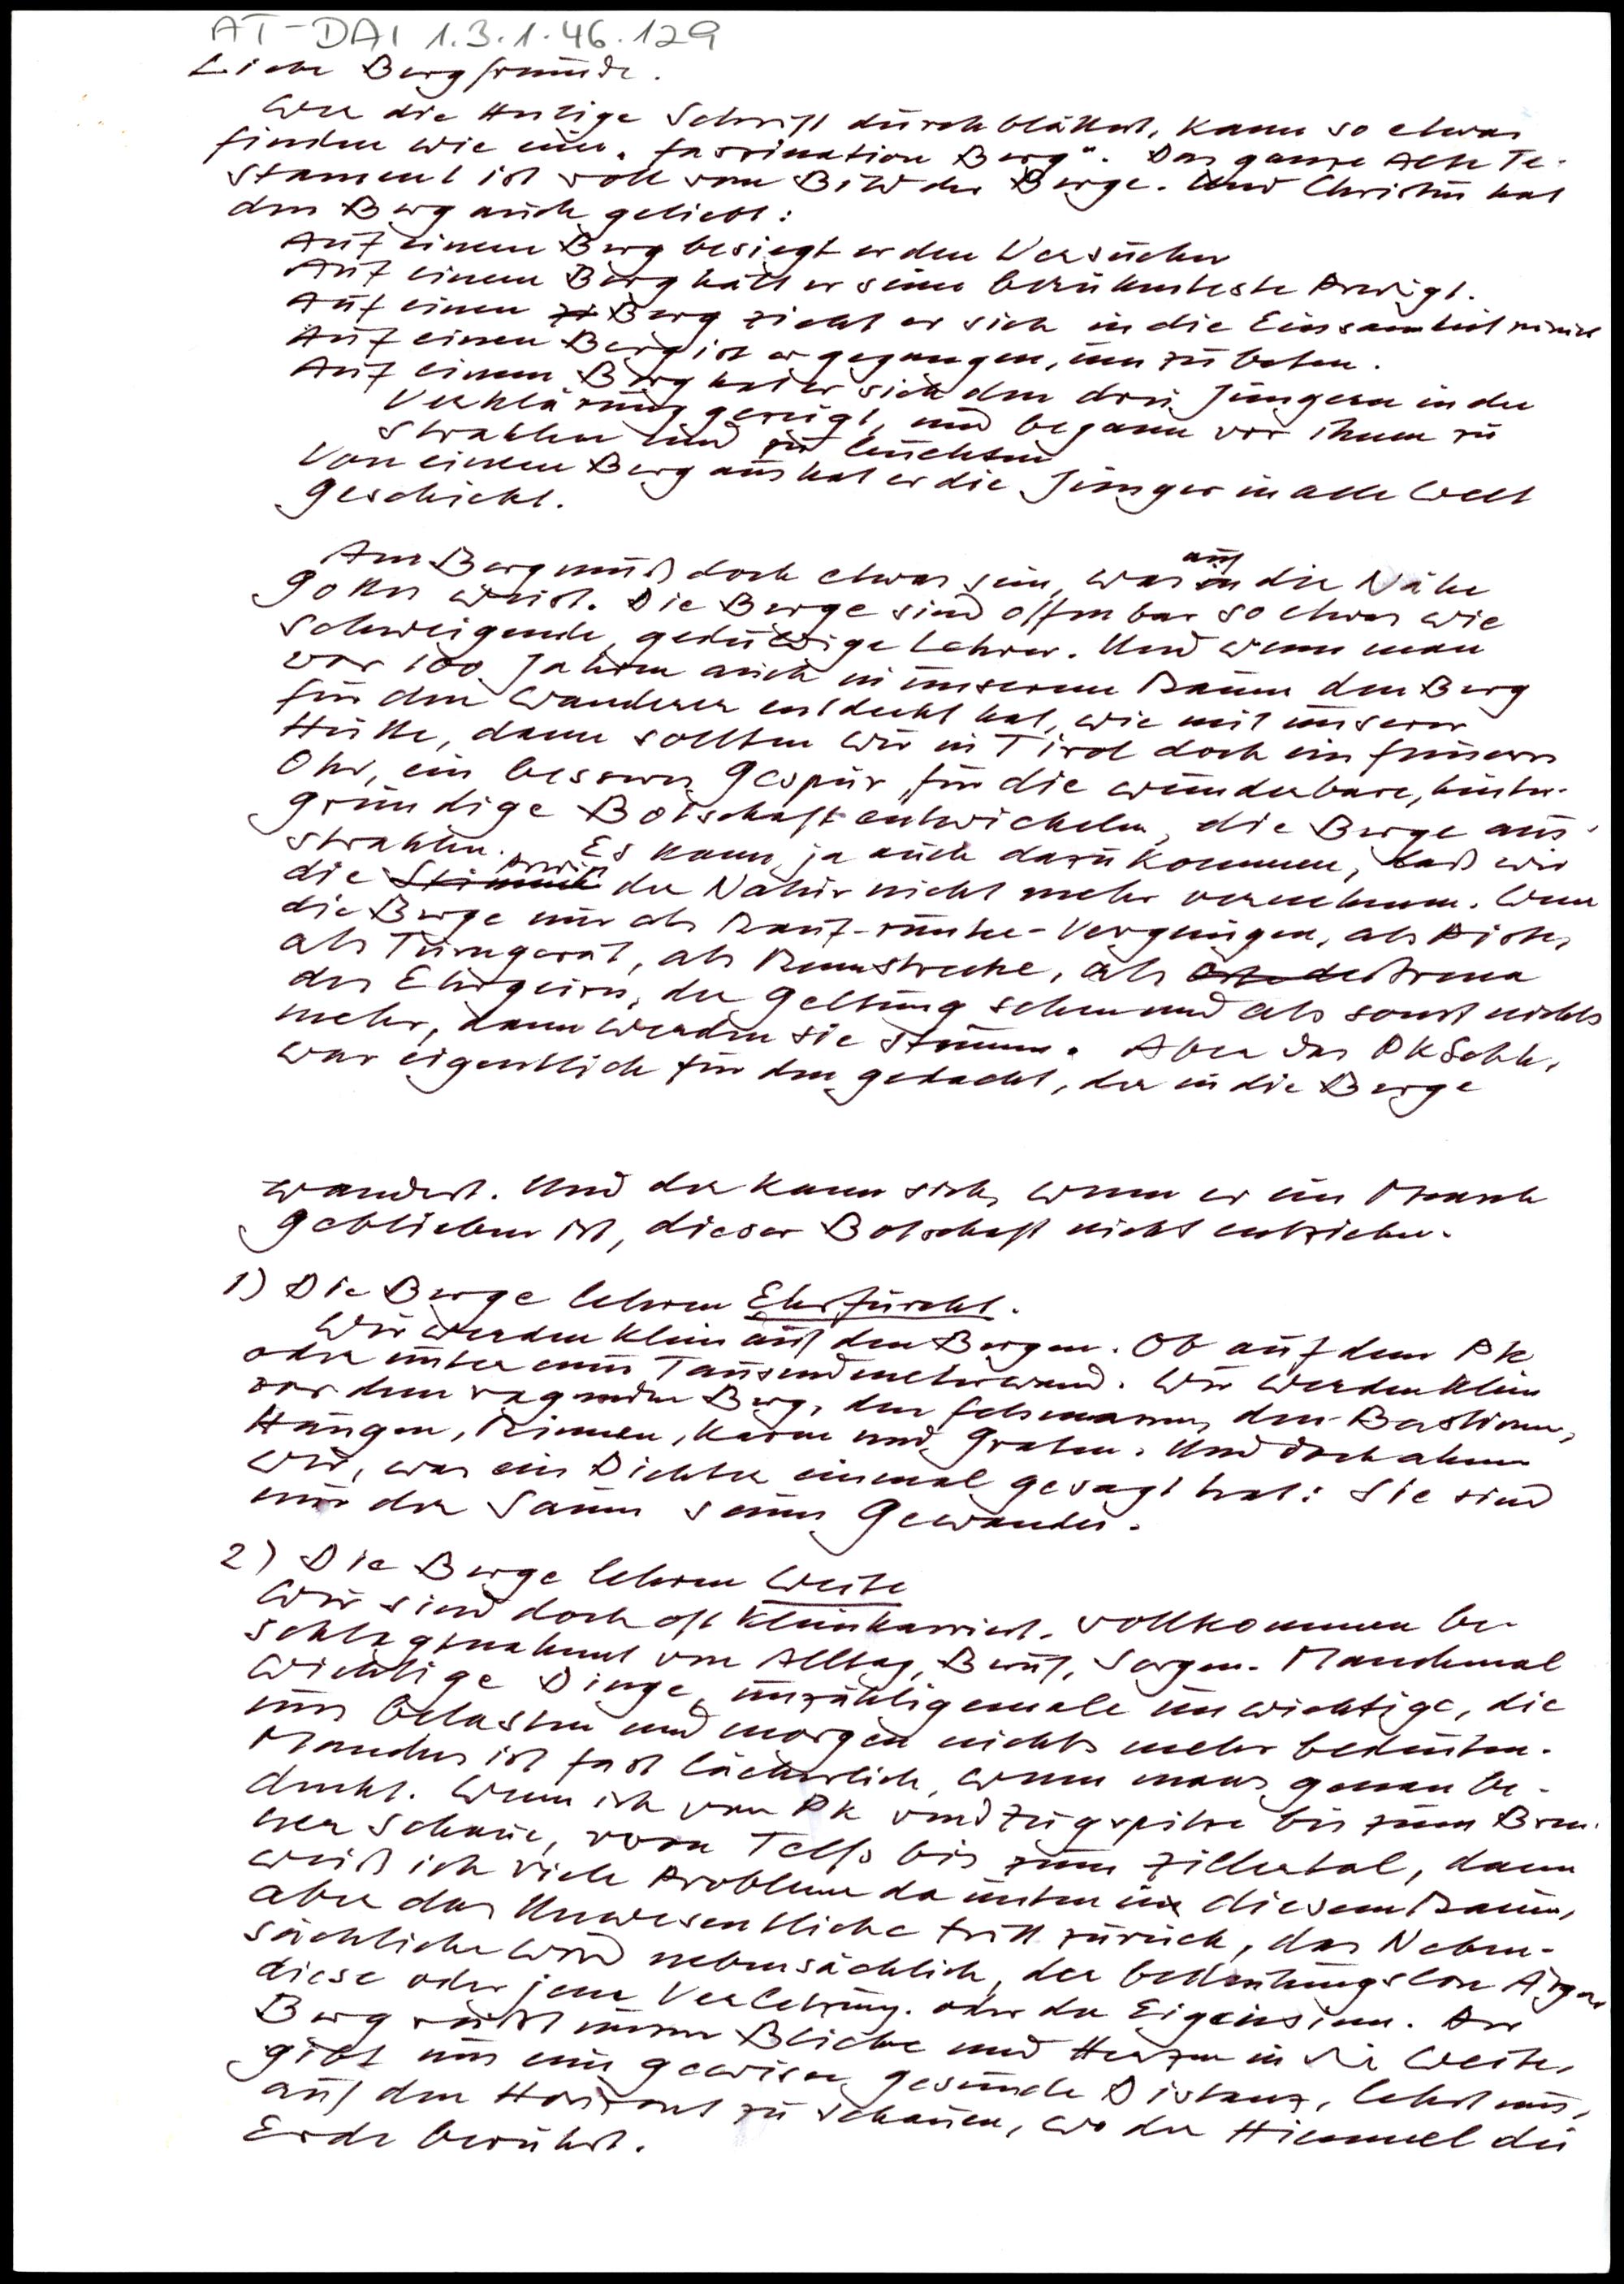 AT-DAI 1.3.1.46.129
Liebe Bergfreunde.
Wer die Heilige Schrift durchblättert, kann so etwas
finden wie eine „Faszination Berg“. Das ganze Alte Te-
stament ist voll vom Bild der Berge. Und Christus hat
den Berg auch geliebt:
Auf einem Berg besiegt er den Versucher
Auf einem Berg hält er seine berühmteste Predigt.
Auf einen Berg zieht er sich in die Einsamkeit zurück
Auf einen Berg ist er gegangen, um zu beten.
Auf einem Berg hat er sich den drei Jüngern in der
Verklärung gezeigt, und begann vor ihnen zu
strahlen und zu leuchten
Von einem Berg aus hat er die Jünger in alle Welt
geschickt.
Am Berg muß doch etwas sein, was auf die Nähe
Gottes weist. Die Berge sind offenbar so etwas wie
schweigende, geduldige Lehrer. Und wenn man
vor 100 Jahren auch in unserem Raum den Berg
für den Wanderer entdeckt hat, wie mit unserer
Hütte, dann sollten wir in Tirol doch ein feineres
Ohr, ein besseres Gespür für die wunderbare, hinter-
gründige Botschaft entwickeln, die Berge aus-
strahlen. Es kann ja auch dazu kommen, daß wir
die Stimme Predigt der Natur nicht mehr vernehmen. Wenn
die Berge nur als Rauf-runter-Vergnügen, als Piste,
als Turngerät, als Rennstrecke, als Arena
des Ehrgeizes, der Geltung sehen und als sonst nichts
mehr, dann werden sie stumm. Aber das PKSchh.
war eigentlich für den gedacht, der in die Berge
wandert. Und der kann sich, wenn er ein Mensch
geblieben ist, dieser Botschaft nicht entziehen.
1) Die Berge lehren Ehrfurcht.
Wir werden klein auf den Bergen. Ob auf dem PK
oder unter einer Tausendmeterwand. Wir werden klein
vor dem ragenden Berg, den Felsmassen, den Bastionen,
Hängen, Rinnen, Karen und Graten. Und doch ahnen
wir, was ein Dichter einmal gesagt hat: Sie sind
nur der Saum seines Gewandes.
2) Die Berge lehren Weite
Wir sind doch oft kleinkarriert. vollkommen be-
schlagnahmt von Alltag, Beruf, Sorgen. Manchmal
wichtige Dinge, unzähligemale unwichtige, die
uns belasten und morgen nichts mehr bedeuten.
Manches ist fast lächerlich, wenn mans genau be-
denkt. Wenn ich vom PK von Zugspitze bis zum Bren-
ner schaue, vom Telfs bis zum Zillertal, dann
weiß ich viele Probleme da unten in diesem Raum,
aber das Unwesentliche tritt zurück, das Neben-
sächliche wird nebensächlich, der bedeutungslose Ärger
diese oder jene Verletzung. oder der Eigensinn. Der
Berg reißt unsere Blicke und Herzen in die Weite,
gibt uns eine gewisse, gesunde Distanz, lehrt uns,
auf den Horizont zu schauen, wo der Himmel die
Erde berührt.